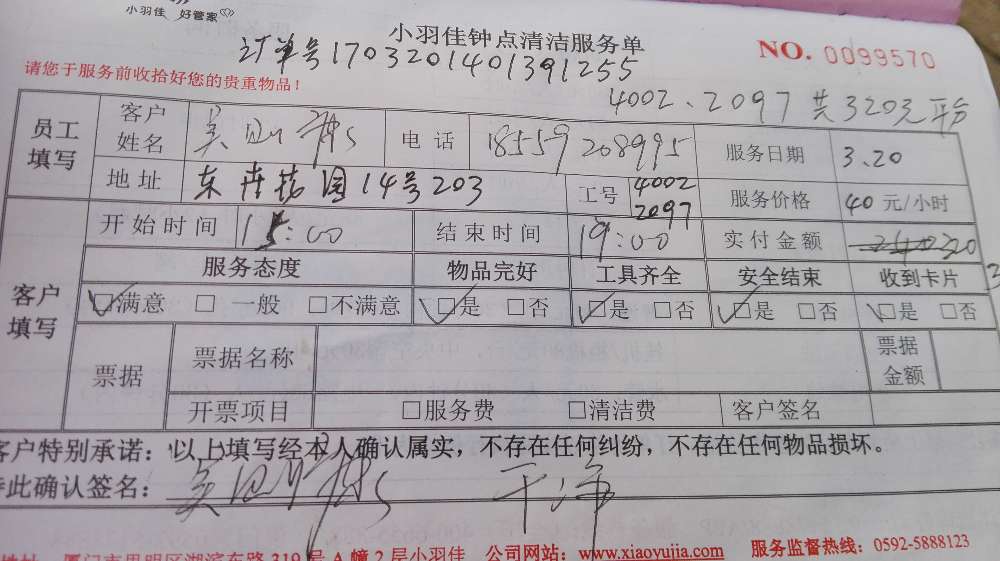 小羽佳 好管家
小羽佳钟点清洁服务单
NO. 0099570
订单号1703201401391255
请您于服务前收拾好您的贵重物品！
4002、2097 共320元 平台
员工填写 客户姓名 吴 电话 18559208995 服务日期 3.20
地址 东 园14号203 工号 4002 2097 服务价格 40元/小时
客户填写 开始时间 15:00 结束时间 19:00 实付金额 320
服务态度 物品完好 工具齐全 安全结束 收到卡片 3
☑满意 □一般 □不满意 ☑是 □否 ☑是 □否 ☑是 □否 ☑是 □否
票据 票据名称 票据金额
开票项目 □服务费 □清洁费 客户签名
客户特别承诺：以上填写经本人确认属实，不存在任何纠纷，不存在任何物品损坏。
此确认签名： 吴 干净
厦门市思明区湖滨东路319号A幢2层小羽佳 公司网站：www.xiaoyujia.com 服务监督热线：0592-5888123